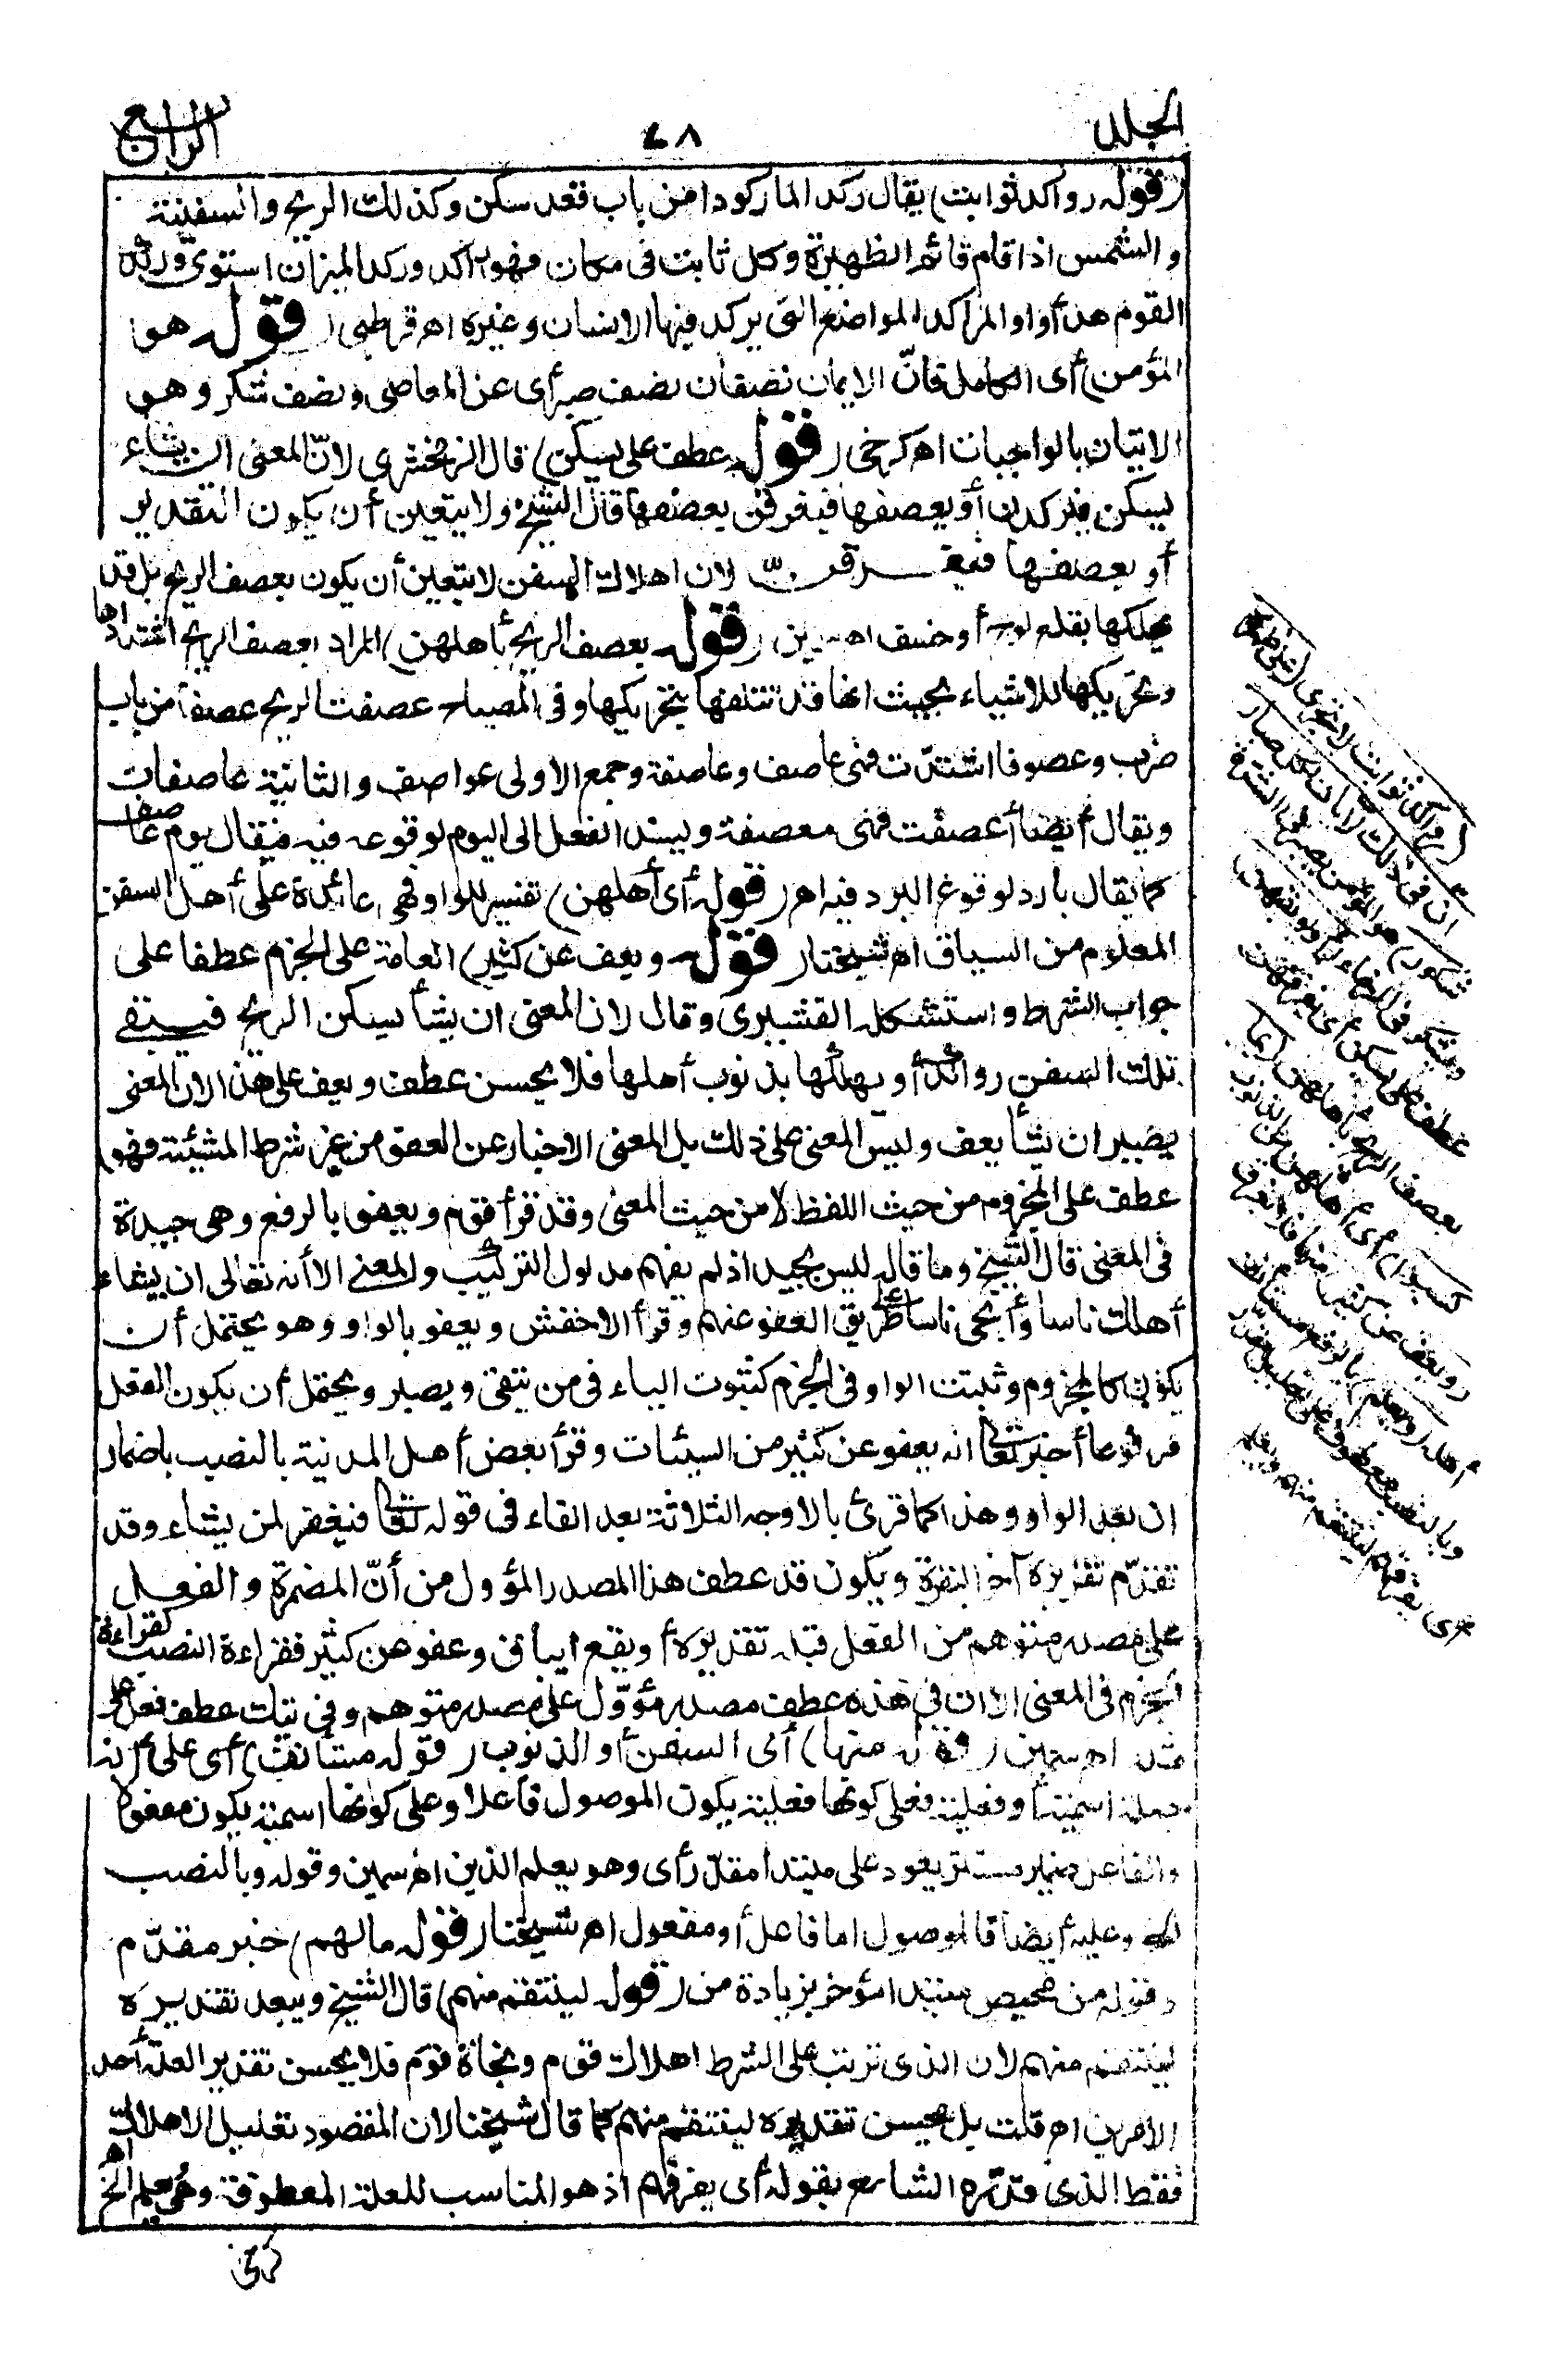 الجلد
٤٨
الرابع
(قوله رواكد ثوابت) يقال ركد الماء ركودا من باب قعد سكن وكذلك الريح والسفينة
والشمس اذا قام قائم الظهيرة وكل ثابت فى مكان فهو راكد وركد الميزان استوى وركد
القوم هدأوا والمراكد المواضع التى يركد فيها الانسان وغيره اه قرطبى (قوله هو
المؤمن) أى الكامل فانّ الايمان نصفان نصف صبر أى عن المعاصى ونصف شكر وهو
الاتيان بالواجبات اه كرخى (قوله عطف على يسكن) قال الزمخشرى لانّ المعنى ان يشأ
يسكن فيركدن أو يعصفها فيغرقن بعصفها قال الشيخ ولا يتعين أن يكون التقدير
أو يعصفها فيغرقن لان اهلاك السفن لا يتعين أن يكون بعصف الريح بل قد
يهلكها بقلع لوح أو خسف اه سمين (قوله بعصف الريح بأهلهن) المراد بعصف الريح اشتدادها
وتحريكها للاشياء بحيث انها قد تتلفها بتحريكها وفى المصباح عصفت الريح عصفا من باب
ضرب وعصوفا اشتدّت فهى عاصف وعاصفة وجمع الاولى عواصف والثانية عاصفات
ويقال أيضا أعصفت فهى معصفة ويسند الفعل الى اليوم لوقوعه فيه فيقال يوم عاصف
كما يقال بارد لوقوع البرد فيه اه (قوله أى أهلهن) تفسير للواو فهى عائدة على أهل السفن
المعلوم من السياق اه شيخنا (قوله ويعف عن كثير) العامة على الجزم عطفا على
جواب الشرط واستشكله القشيرى وقال لان المعنى ان يشأ يسكن الريح فيبقى
تلك السفن رواكد أو يهلكها بذنوب أهلها فلا يحسن عطف ويعف على هذا لان المعنى
يصير ان يشأ يعف وليس المعنى على ذلك بل المعنى الاخبار عن العفو من غير شرط المشيئة فهو
عطف على المجزوم من حيث اللفظ لا من حيث المعنى وقد قرأ قوم ويعفو بالرفع وهى جيدة
فى المعنى قال الشيخ وما قاله ليس بجيد اذ لم يفهم مدلول التركيب والمعنى الا أنه تعالى ان يشاء
أهلك ناسا وأنجى ناسا على طريق العفو عنهم وقرأ الاخفش ويعفو بالواو وهو يحتمل أن
يكون كالمجزوم وثبتت الواو فى الجزم كثبوت الياء فى من يتقى ويصبر ويحتمل أن يكون الفعل
مرفوعا أخبر تعالى انه يعفو عن كثير من السيئات وقرأ بعض أهل المدينة بالنصب باضمار
ان بعد الواو وهذا كما قرئ بالاوجه الثلاثة بعد الفاء فى قوله تعالى فيغفر لمن يشاء وقد
تقدّم تقريره آخر البقرة ويكون قد عطف هذا المصدر المؤول من أنّ المضمرة والفعل
على مصدر متوهم من الفعل قبله تقديره أو يقع ايباق وعفو عن كثير فقراءة النصب كقراءة
الجزم فى المعنى الا ان فى هذه عطف مصدر مؤوّل على مصدر متوهم وفى تيك عطف فعل على
مثله اه سمين (قوله منها) أى السفن أو الذنوب (قوله مستأنف) أى على أنه
جملة اسمية أو فعلية فعلى كونها فعلية يكون الموصول فاعلا وعلى كونها اسمية يكون مفعولا
والفاعل ضمير مستتر يعود على مبتدا مقدّر أى وهو يعلم الذين اه سمين وقوله وبالنصب
الخ وعليه أيضا فالموصول اما فاعل أو مفعول اه شيخنا (قوله ما لهم) خبر مقدّم
وقوله من محيص مبتدا مؤخر بزيادة من (قوله لينتقم منهم) قال الشيخ ويبعد تقديره
لينتقم منهم لان الذى ترتب على الشرط اهلاك قوم ونجاة قوم فلا يحسن تقدير العلة أحد
الامرين اه قلت بل يحسن تقديره لينتقم منهم كما قال شيخنا لان المقصود تعليل الاهلاك
فقط الذى قدّره الشارح بقوله أى يغرقهم اذ هو المناسب للعلة المعطوفة وهى يعلم الخ اه
كرخى
(رواكد) ثوابت لا تجرى (على ظهره
ان فى ذلك لآيات لكل صبار
شكور) هو المؤمن يصبر فى الشدة
ويشكر فى الرخاء (أو يوبقهن)
عطف على يسكن أى يغرقهن
بعصف الريح بأهلهن (بما
كسبوا) أى أهلهن من الذنوب
(ويعف عن كثير) منها فلا يغرق
أهله (ويعلم) بالرفع مستأنف
وبالنصب معطوف على تعليل مقدر
أى يغرقهم لينتقم منهم ويعلم